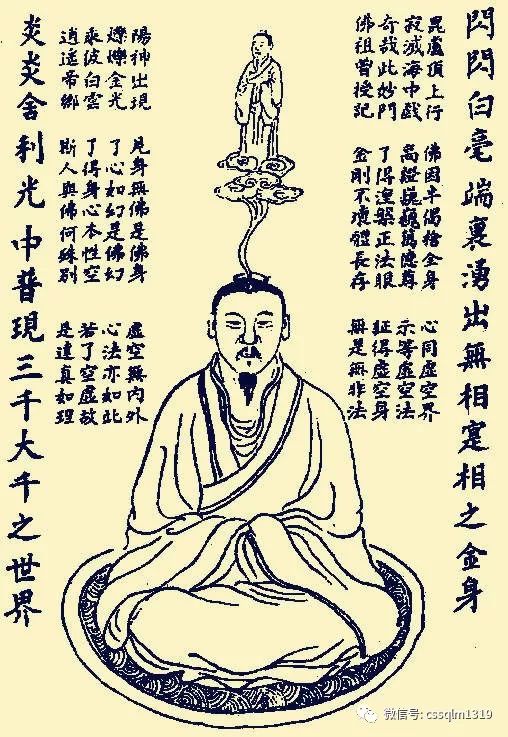 閃閃白毫端裏湧出無相寔相之金身
毘盧頂上行
寂滅海中戲
奇哉此妙門
佛祖曾授記
佛因半偈捨全身
高證巍巍萬德尊
了得涅槃正法眼
金剛不壞體長存
心同虛空界
示等虛空法
証得虛空身
無是無非法
陽神出現
爍爍金光
乘彼白雲
逍遙帝鄉
見身無佛是佛身
了心如幻是佛幻
了得身心本性空
斯人與佛何殊別
虛空無內外
心法亦如此
若了空虛故
是達真如理
炎炎舍利光中普現三千大千之世界
微信号: cssqlm1319